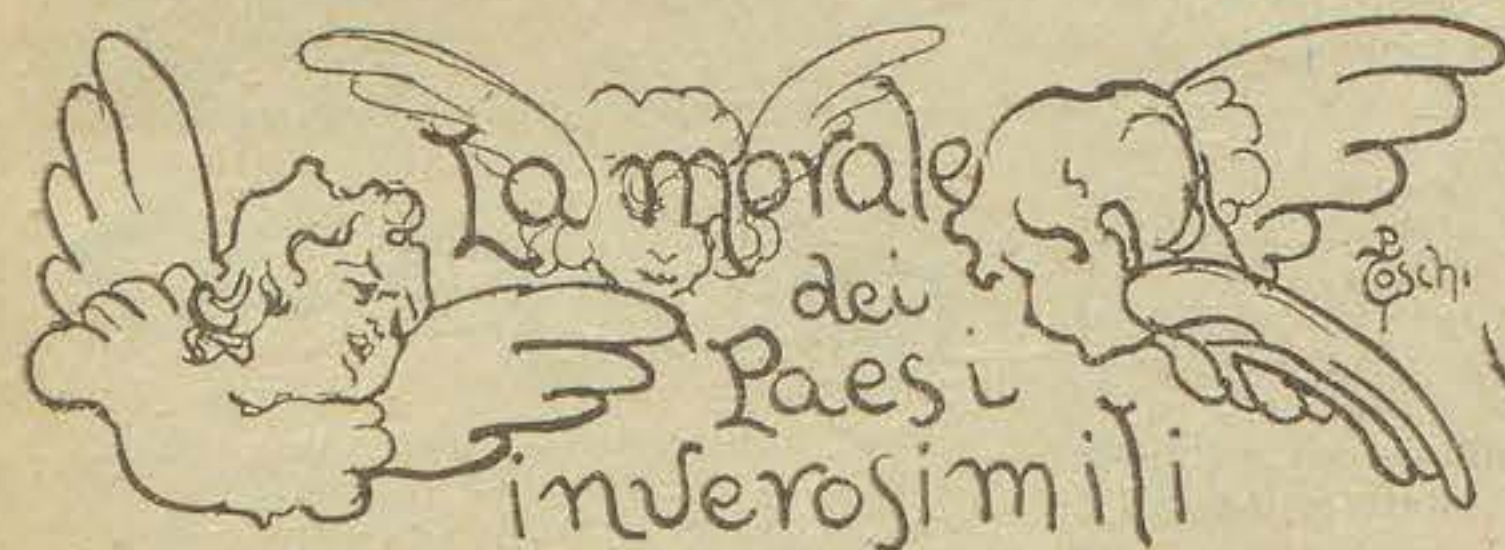 La morale
dei
Paesi
inverosimili
Toschi